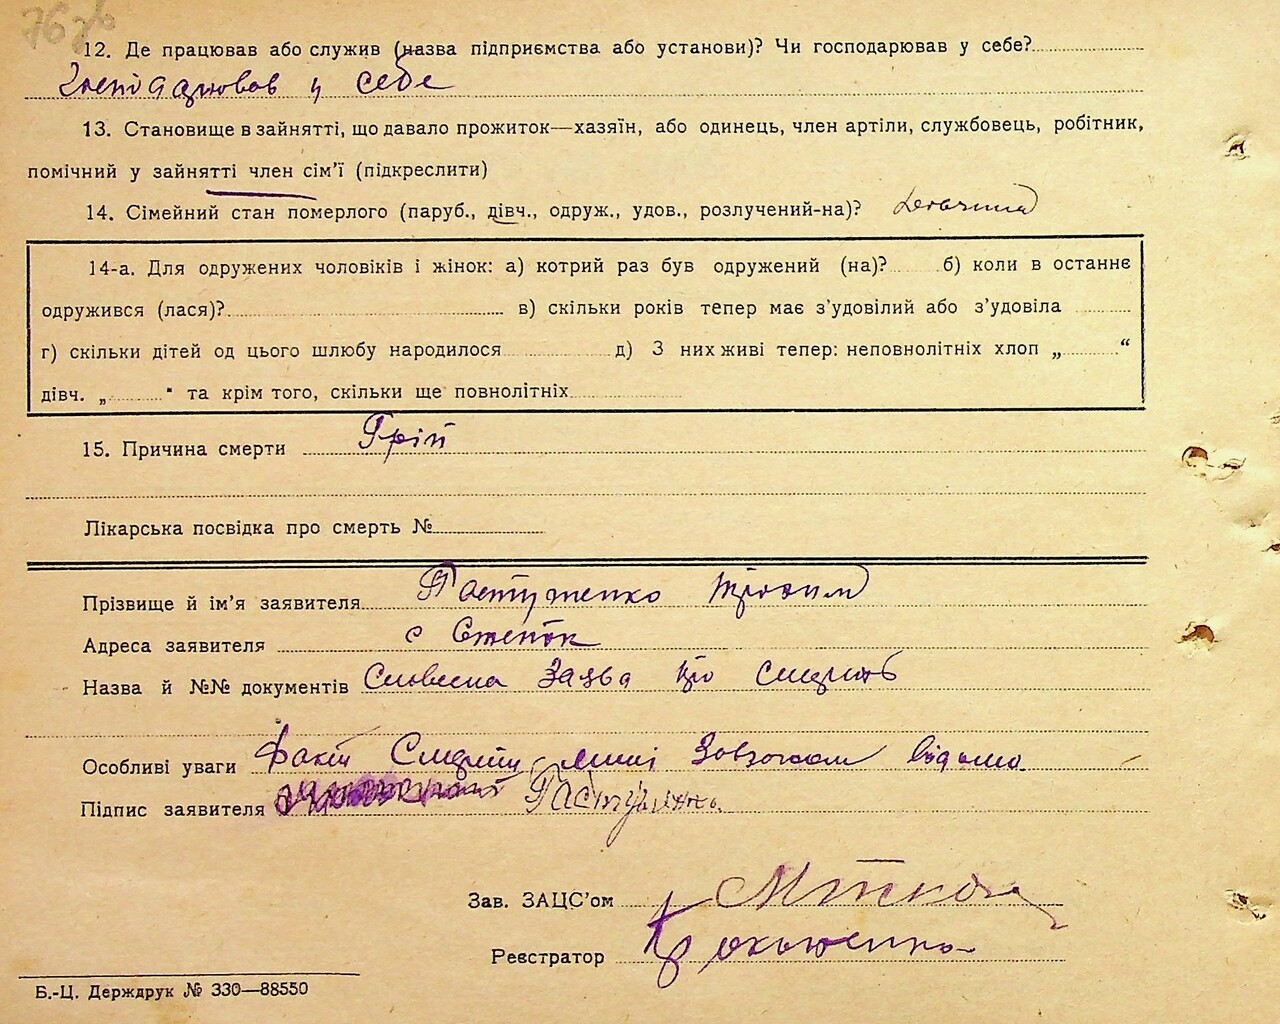 12. Де працював або служив (назва підприємства або установи)? Чи господарював у себе?
Господарював у себе
13. Становище в зайнятті, що давало прожиток—хазяїн, або одинець, член артіли, службовець, робітник,
помічний у зайнятті член сім'ї (підкреслити)
14. Сімейний стан померлого (паруб., дівч., одруж., удов., розлучений-на)? Дівчина
14-а. Для одружених чоловіків і жінок: а) котрий раз був одружений (на)? б) коли в останнє
одружився (лася)? в) скільки років тепер має з'удовілий або з'удовіла
г) скільки дітей од цього шлюбу народилося д) З них живі тепер: неповнолітніх хлоп „ “
дівч. „ “ та крім того, скільки ще повнолітніх
15. Причина смерти Гріп
Лікарська посвідка про смерть №
Прізвище й ім'я заявителя
Адреса заявителя с Степок
Назва й №№ документів Словесна Заява про смерть
Особливі уваги Факт Смерти мені Зовзагсом відомо
Підпис заявителя
Зав. ЗАЦС'ом
Реєстратор
Б.-Ц. Держдрук № 330—88550